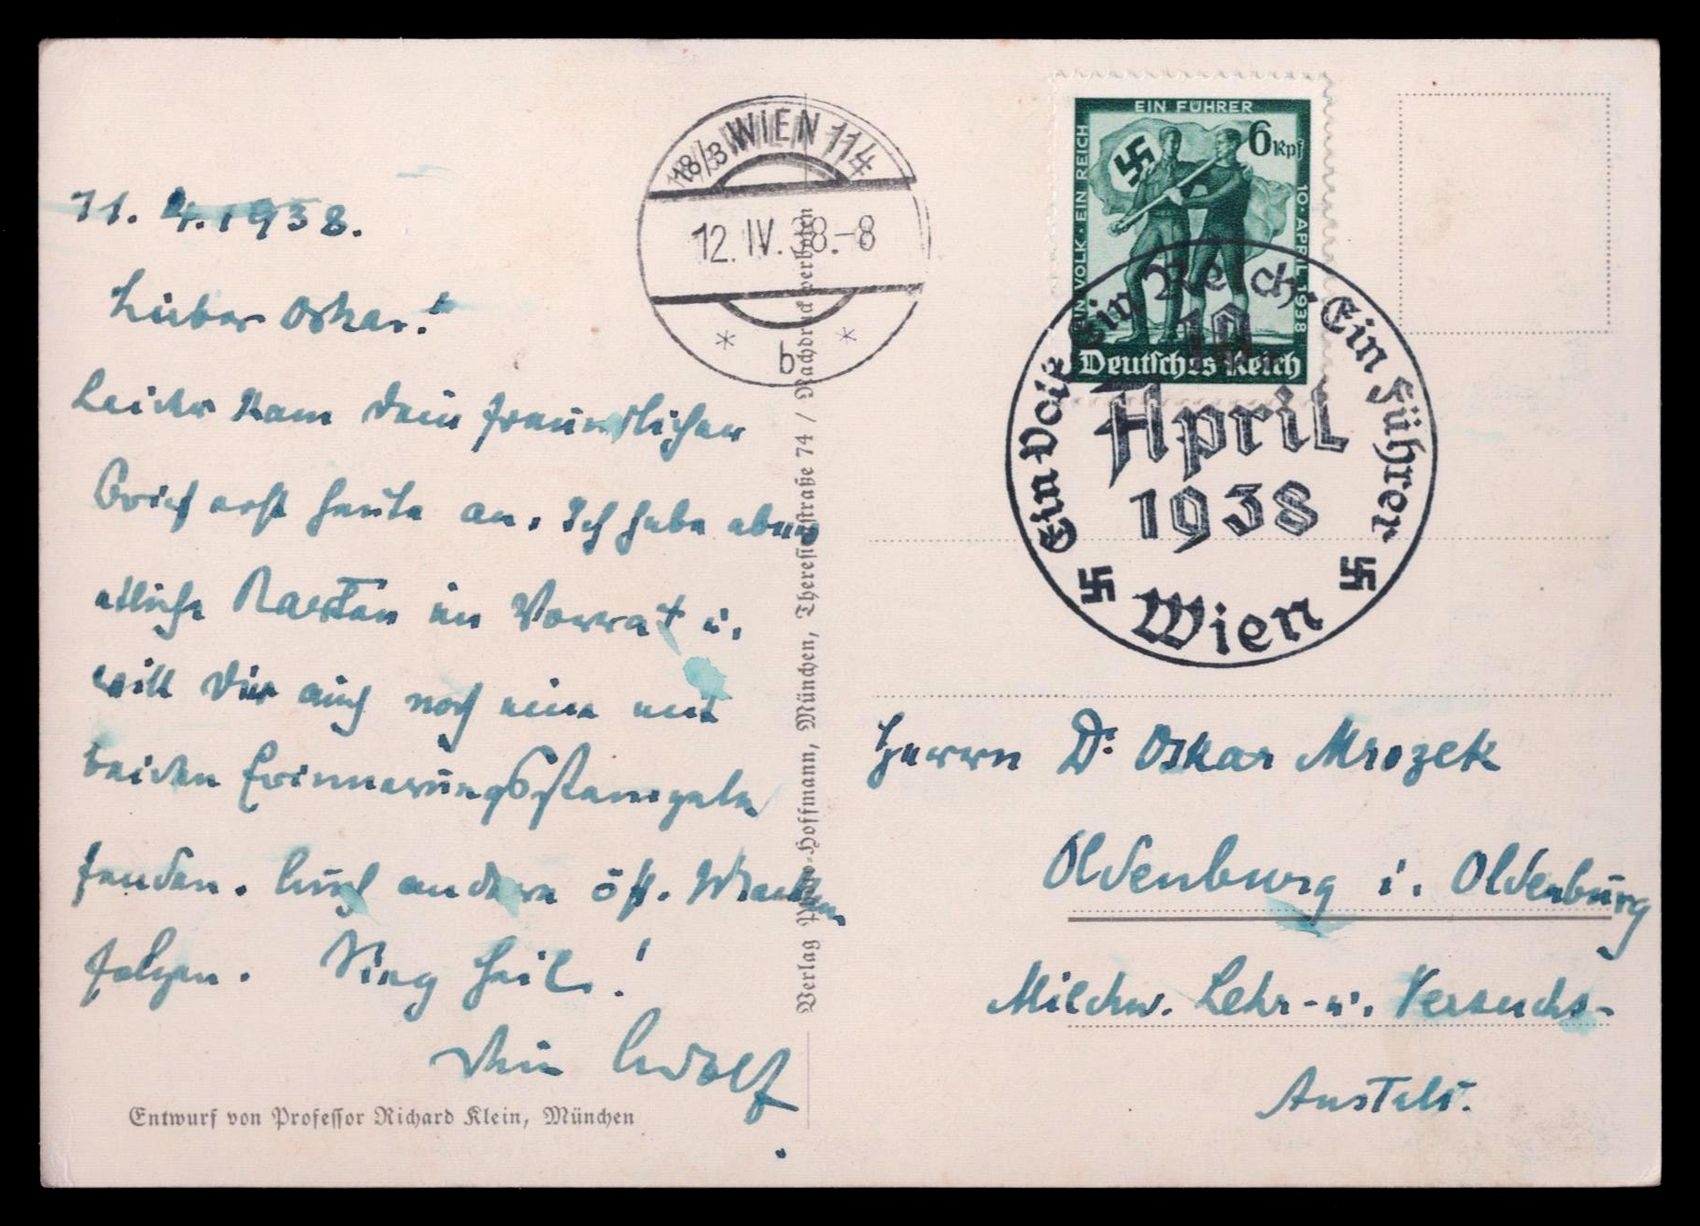 11. 4. 1938.
Lieber Oskar!
Leider kam Dein freundlicher
Brief erst heute an. Ich habe aber
etliche Karten im Vorrat u.
will Dir auch noch eine mit
beiden Erinnerungsstempeln
senden. Auch andere öst. Marken
folgen. Sieg Heil!
Dein Adolf
Entwurf von Professor Richard Klein, München
Verlag Photo-Hoffmann, München, Theresienstraße 74 / Nachdruck verboten
18/3 WIEN 114
12. IV. 38.-8
* b *
EIN FÜHRER
EIN VOLK · EIN REICH
6 Rpf
10. APRIL 1938
Deutsches Reich
Ein Volk Ein Reich Ein Führer
10.
April
1938
Wien
Herrn Dr. Oskar Mrozek
Oldenburg i. Oldenburg
Milchw. Lehr- u. Versuchs-
Anstalt.